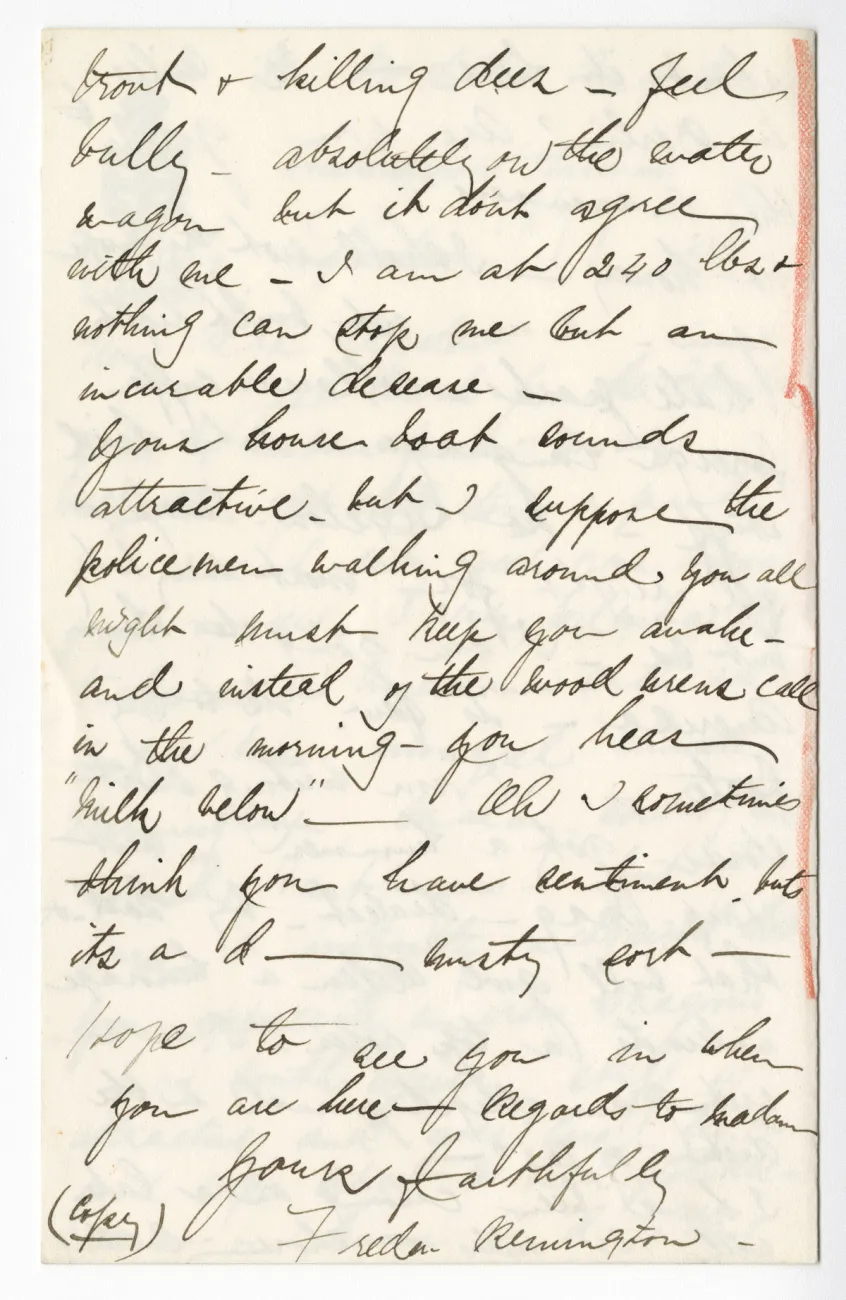 trout & killing deer – feel
bully – absolutely on the water
wagon but it don't agree
with me – I am at 240 lbs &
nothing can stop me but an
incurable desease –
Your house boat sounds
attractive – but I suppose the
policemen walking around you all
night must keep you awake –
and instead of the wood wrens call
in the morning – you hear
"Milk below" — Oh I sometimes
think you have sentiment but
its a d—— musty sort —
Hope to see you in when
you are here – Regards to madam
Yours faithfully
(Copy) Frederic Remington –